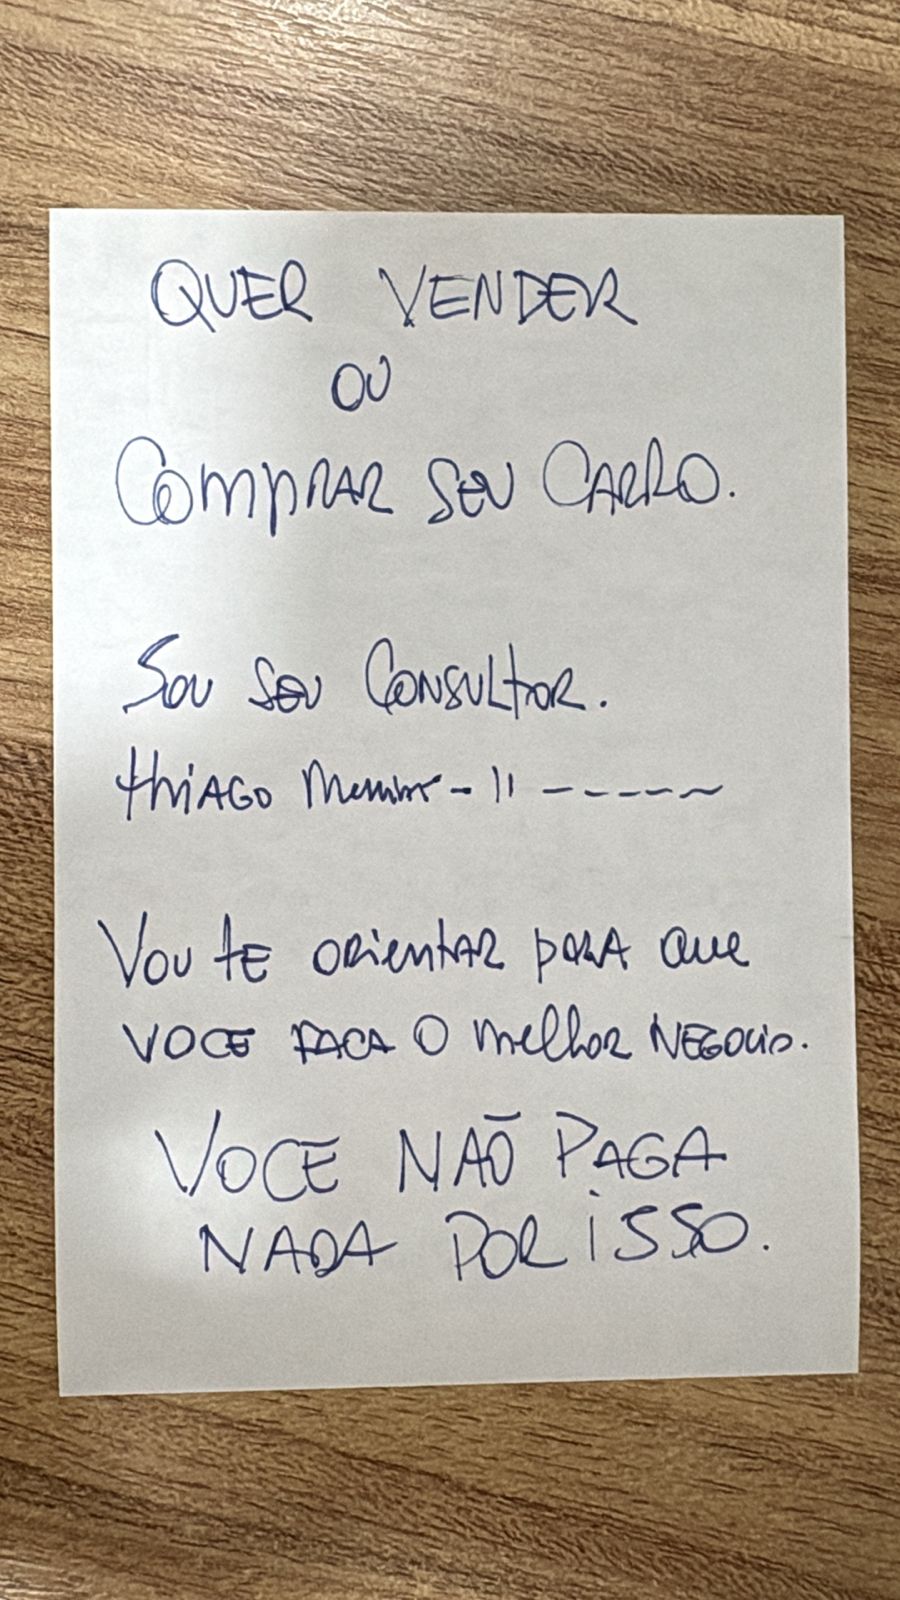 QUER VENDER
OU
COMPRAR SEU CARRO.
SOU SEU CONSULTOR.
THIAGO - 11 - - - - - ~
VOU TE ORIENTAR PARA QUE
VOCE FACA O melhor NEGOCIO.
VOCE NAÕ PAGA
NADA POR iSSO.